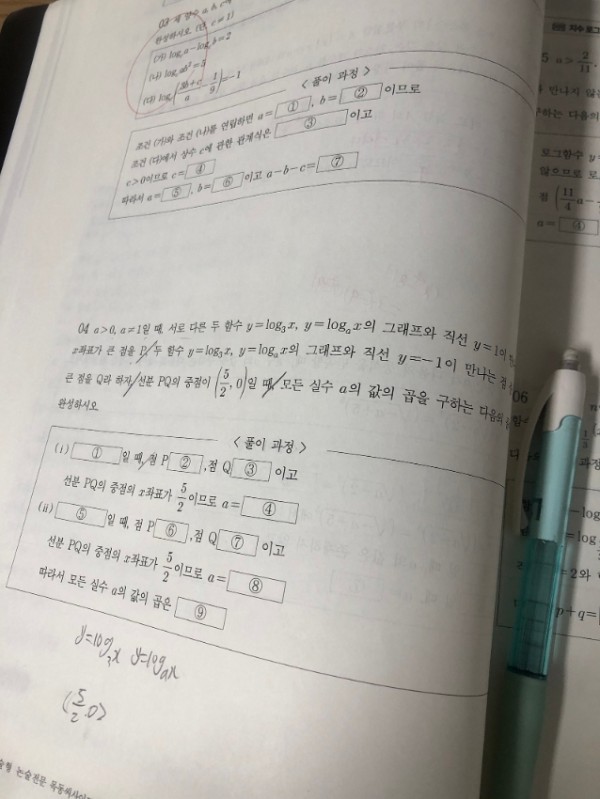 완성하시오. (단, c≠1)
(가) logc a-logc b=2
(다) log
< 풀이 과정 >
조건 (가)와 조건 (나)를 연립하면 a= ① , b= ② 이므로
조건 (다)에서 상수 c에 관한 관계식은 ③ 이고
c>0이므로 c= ④
따라서 a= ⑤ , b= ⑥ 이고 a-b-c= ⑦
04 a>0, a≠1일 때, 서로 다른 두 함수 y=log₃x, y=logₐx의 그래프와 직선 y=1이
x좌표가 큰 점을 P, 두 함수 y=log₃x, y=logₐx의 그래프와 직선 y=-1이 만나는 점
큰 점을 Q라 하자. 선분 PQ의 중점이 (5/2, 0)일 때, 모든 실수 a의 값의 곱을 구하는 다음의
완성하시오.
< 풀이 과정 >
(i) ① 일 때, 점 P ② , 점 Q ③ 이고
선분 PQ의 중점의 x좌표가 5/2이므로 a= ④
(ii) ⑤ 일 때, 점 P ⑥ , 점 Q ⑦ 이고
선분 PQ의 중점의 x좌표가 5/2이므로 a= ⑧
따라서 모든 실수 a의 값의 곱은 ⑨
y=log₃x y=logax
(5/2, 0)
5 a>2/11
만나지
하는 다음의
로그함수 y=
않으므로 로
점 (11/4 a-
a= ④
06
과정
=2와
p+q=